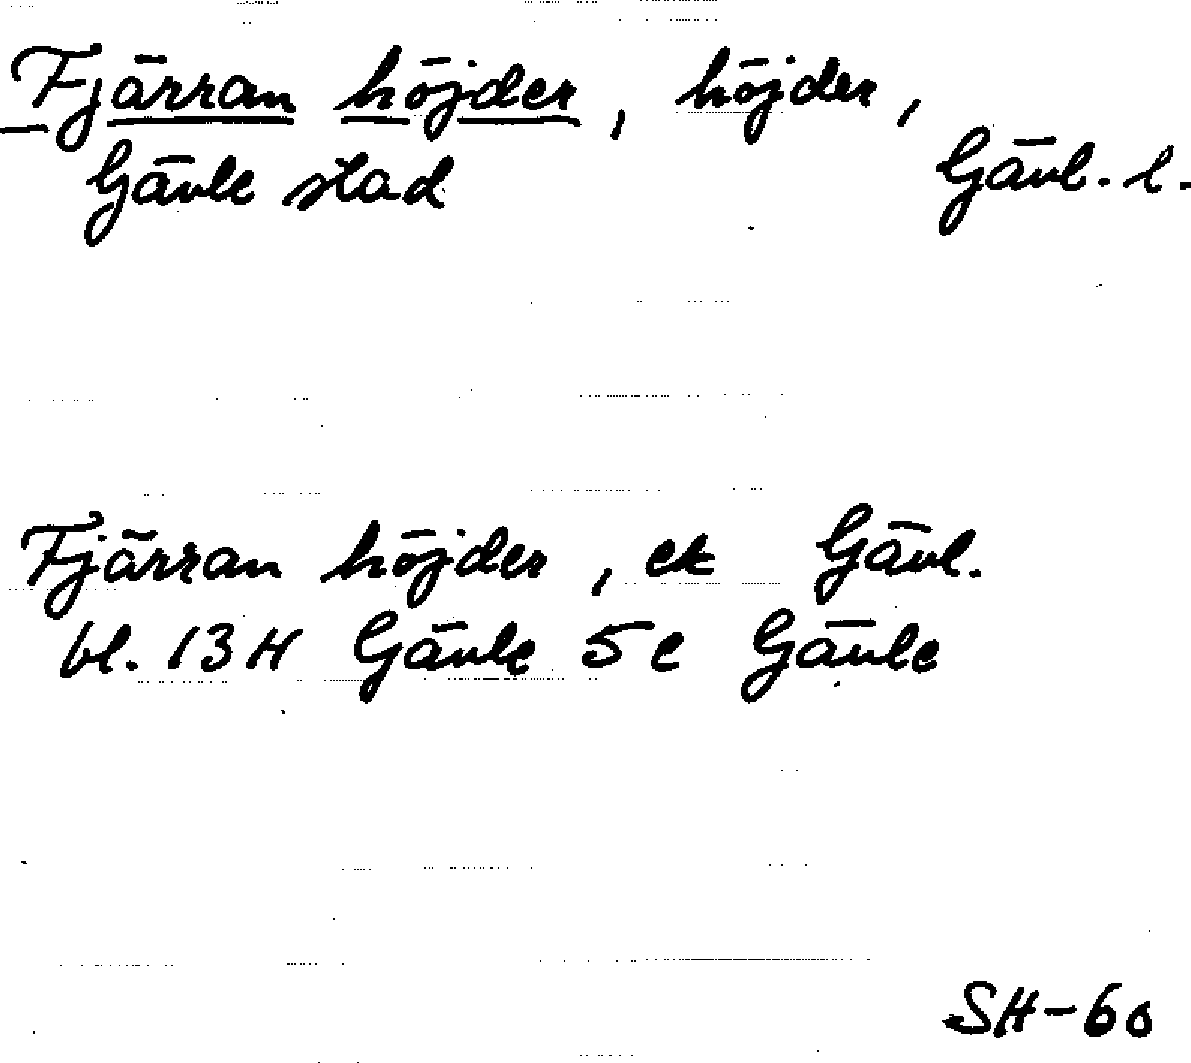 Fjärran höjder, höjder,
Gävle stad Gävl. l.
Fjärran höjder, ek Gävl.
bl. 13H Gävle 5c Gävle
SH-60